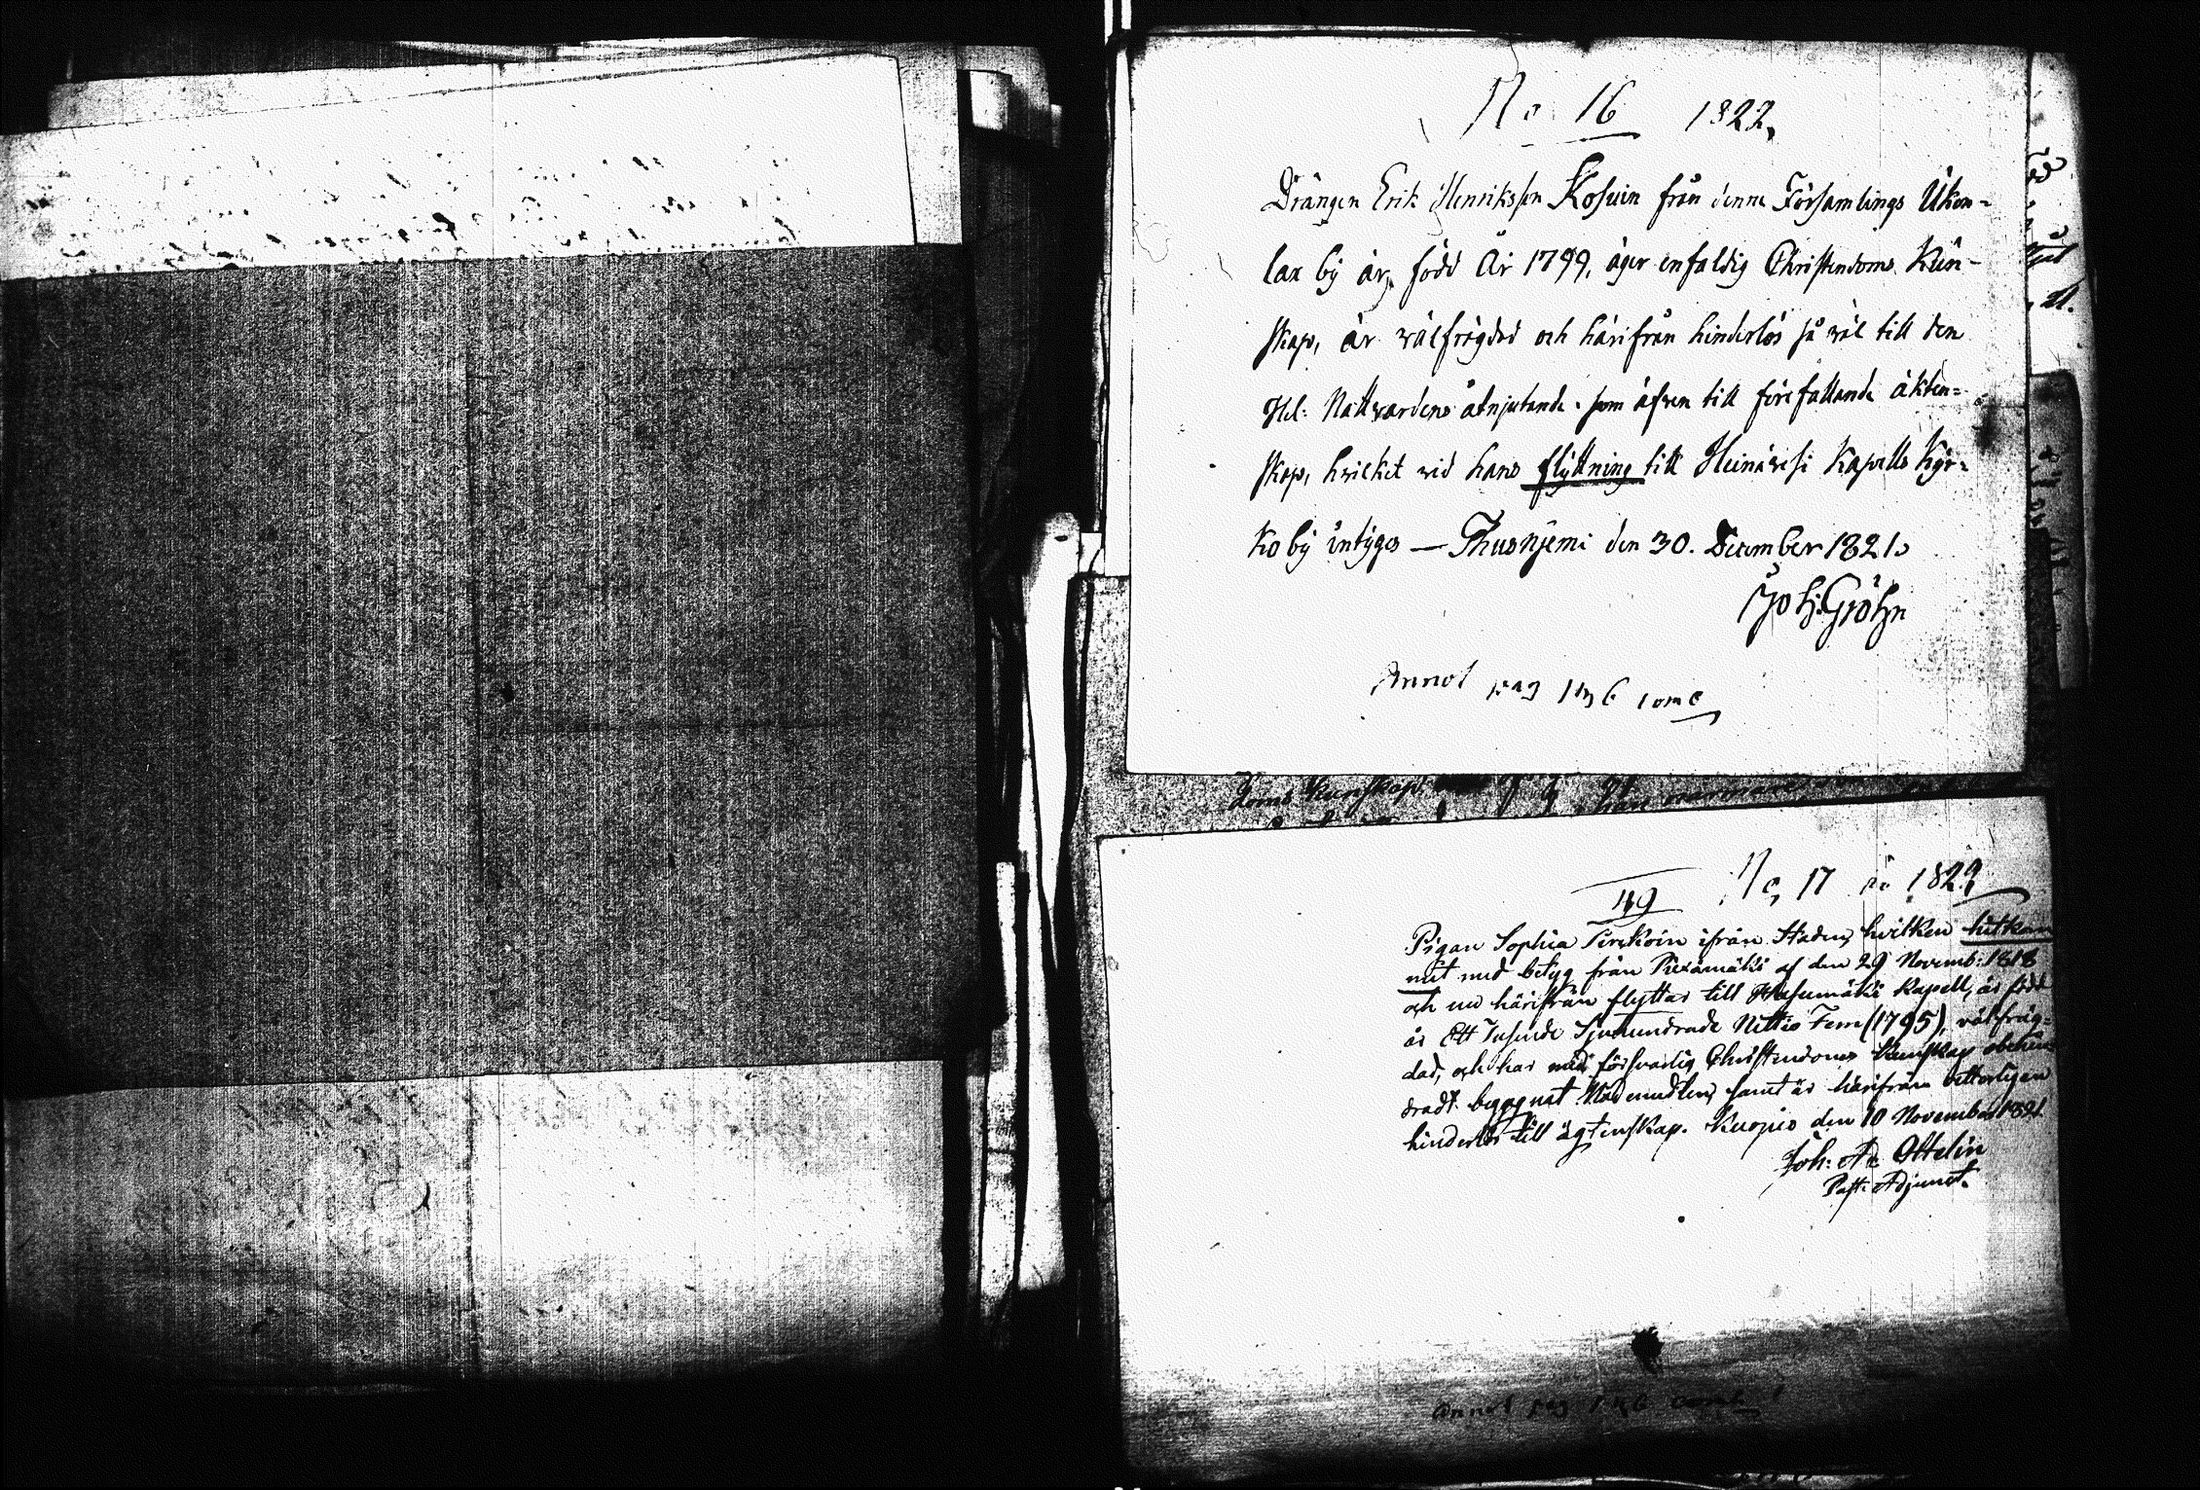 No 16 1822.
Drängen Erik Henriksson Kosuin från denna Församlings Ukon-
lax by är född År 1799, äger enfaldig Christendoms Kun-
skap, är välfrägdad och härifrån hinderlös så väl till den
Hel: Nattvardens åtnjutande som äfven till förefallande äkten=
skap, hvilket vid hans flyttning till Heinävesi Kapells Kyr=
koby intygas — Thusnjemi den 30. December 1821.
Joh: Gröhn
Annot pag 146
doms kunskap
No 17 1822
49
Pigan Sophia ifrån Staden, hvilken hitkom
mit med betyg från Piexämäki af den 29 Novemb: 1818
och nu härifrån flyttar till Kapell, är född
år Ett Tusende Sjuhundrade Nittio Fem (1795), välfräg=
dad, och har med försvarlig Christendoms kunskap obehin=
dradt begagnat Nådemedlen, samt är härifrån vetterligen
hinderlös till ägtenskap. Kuopio den 10 November 1821.
Joh: Ad: Ottelin
Past: Adjunct.
Annot pag 146